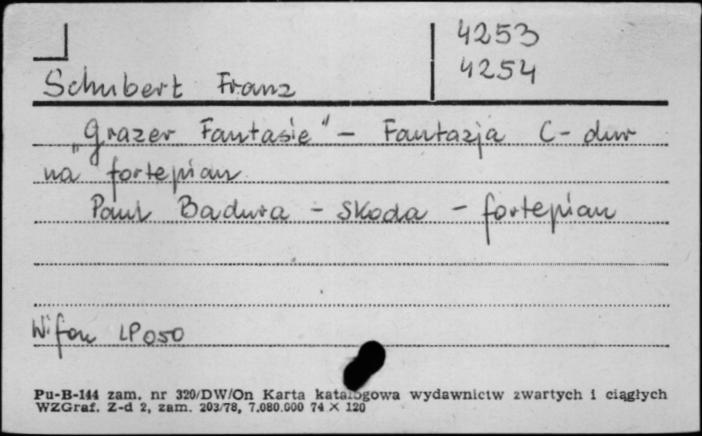 4253
4254
Schubert Franz
„Grazer Fantasie" - Fantazja C-dur
na fortepian
Paul Badura - Skoda - fortepian
Wifon LP 050
Pu-B-144 zam. nr 320/DW/On Karta katalogowa wydawnictw zwartych i ciągłych
WZGraf. Z-d 2, zam. 203/78, 7.080.000 74 × 120